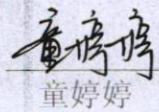 童婷婷
童婷婷